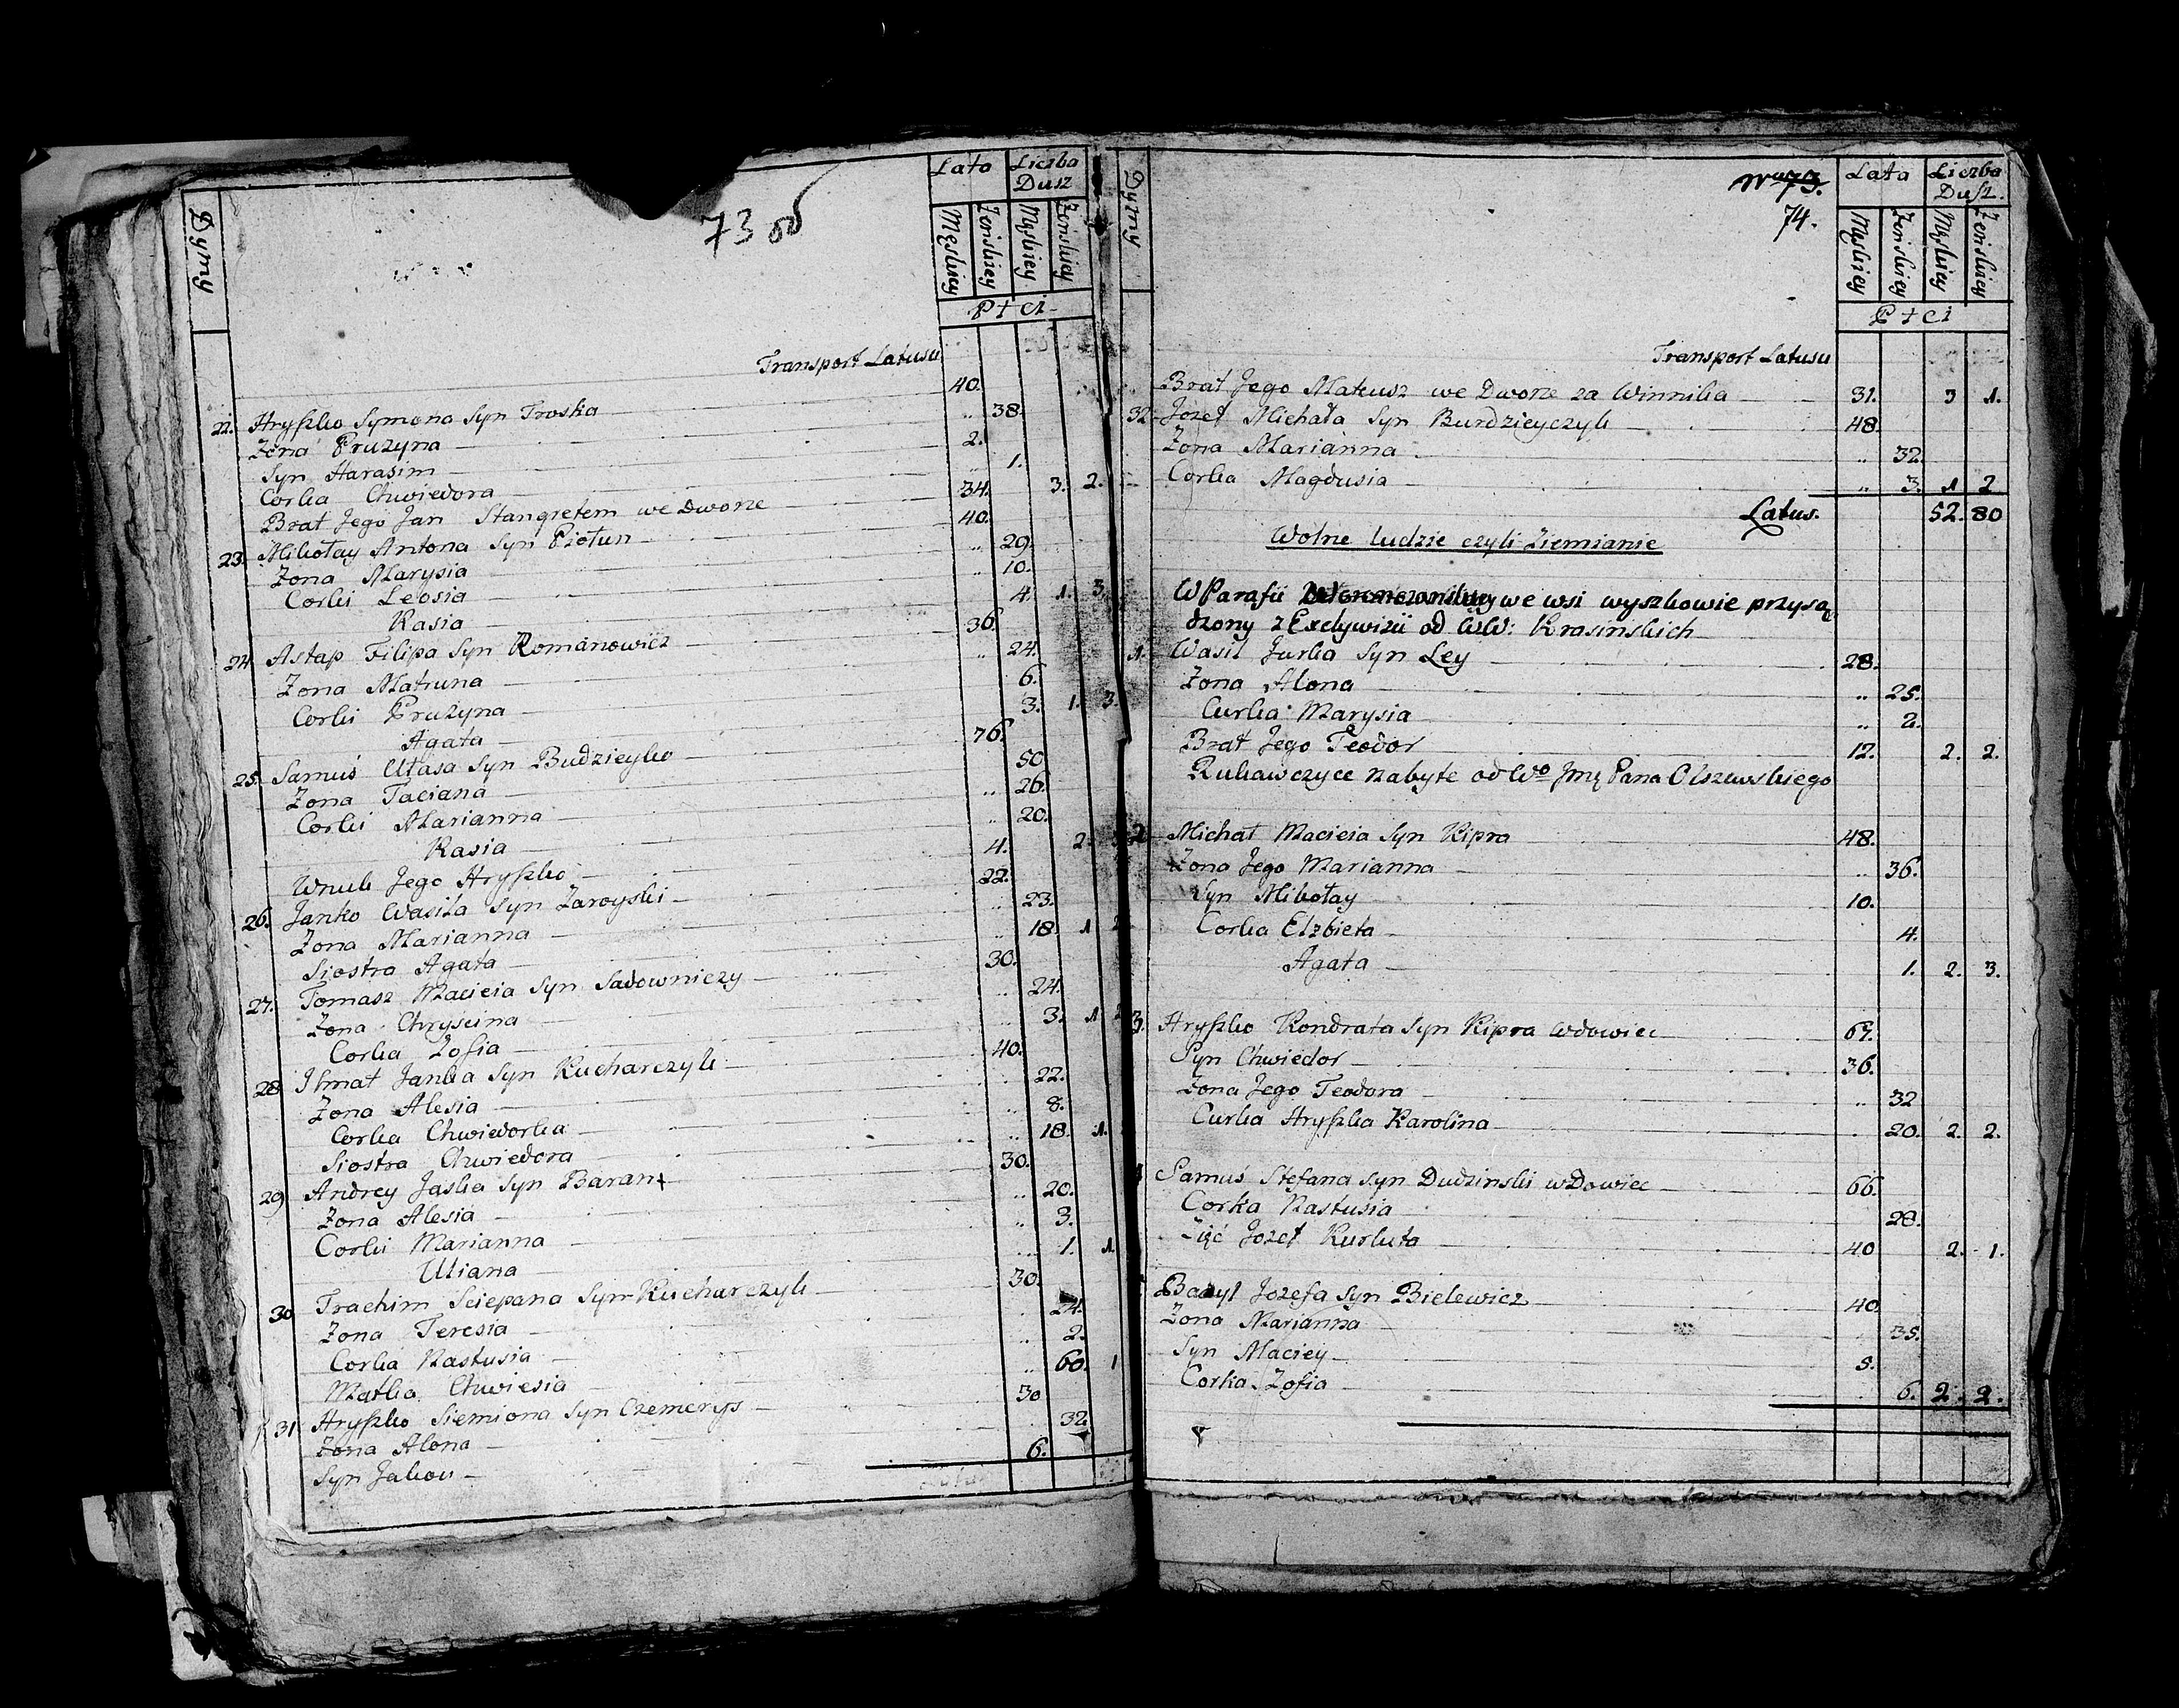 73 об
Dymy
Lata
Liczba Dusz
Męskiey
Żeńskiey
Męskiey
Żeńskiey
Płci
Transport Latusu
22. Hryszko Symona Syn Troska 40.
Żona Pruzyna 38.
Syn Harasim 2.
Corka Chwiedora 1.
Brat Jego Jan Stangretem we Dworze 34. 3. 2.
23. Mikołay Antona Syn Piołun 40.
Żona Marysia 29.
Corki Leosia 10.
Kasia 4. 1. 3.
24. Astap Filipa Syn Romanowicz 36.
Żona Matruna 24.
Corki Pruzyna 6.
Agata 3. 1. 3.
25. Samuś Ułasa Syn Budzieyko 76.
Żona Taciana 50
Corki Marianna 26.
Kasia 20.
Wnuk Jego Hryszko 4. 2.
26. Janko Wasila Syn Zaroyski 22.
Żona Marianna 23.
Siostra Agata 18. 1
27. Tomasz Macieia Syn Sadowniczy 30.
Żona Chryscina 24.
Corka Zofia 3. 1
28 Ihnat Janka Syn Kucharczyk 40.
Żona Alesia 22.
Corka Chwiedorka 8.
Siostra Chwiedora 18. 1.
29 Andrey Jaśka Syn Baran 30.
Żona Alesia 20.
Corki Marianna 3.
Uliana 1. 1.
30 Trachim Sciepana Syn Kucharczyk 30.
Żona Teresia 24.
Corka Nastusia 2.
Matka Chwiesia 60. 1
31 Hryszko Siemiona Syn Czemerys 30
Żona Alona 32.
Syn Jakow 6.
Dymy
No 73.
74.
Lata
Liczba Dusz.
Męskiey
Żeńskiey
Męskiey
Żeńskiey
Płci
Transport Latusu
Brat Jego Mateusz we Dworze za Winnika 31. 3 1.
32. Jozef Michała Syn Burdzieyczyk 48.
Żona Marianna 32.
Corka Magdusia 3. 1 2
Latus. 52. 80
Wolne ludzie czyli Ziemianie
W Parafii we wsi wyszkowie przysą
dzony z Exdywizii od WW: Krasińskich
1. Wasil Jurka Syn Ley 28.
Żona Alona 25.
Curka Marysia 2.
Brat Jego Teodor 12. 2. 2.
Rukawczyce nabyte od Wo Jmę Pana Olszewskiego
2 Michał Macieia Syn Kipra 48.
Żona Jego Marianna 36.
Syn Mikołay 10.
Corka Elzbieta 4.
Agata 1. 2. 3.
3. Hryszko Kondrata Syn Kipra Wdowiec 67.
Syn Chwiedor 36.
Żona Jego Teodora 32
Curka Hryszka Karolina 20. 2. 2.
Samuś Stefana Syn Dudzinski wDowiec 66.
Corka Nastusia 28.
Zięć Jozef Kurluta 40 2. 1.
Bazyl Jozefa Syn Bielewicz 40
Żona Marianna 35.
Syn Maciey 5.
Corka Zofia 6. 2. 2.